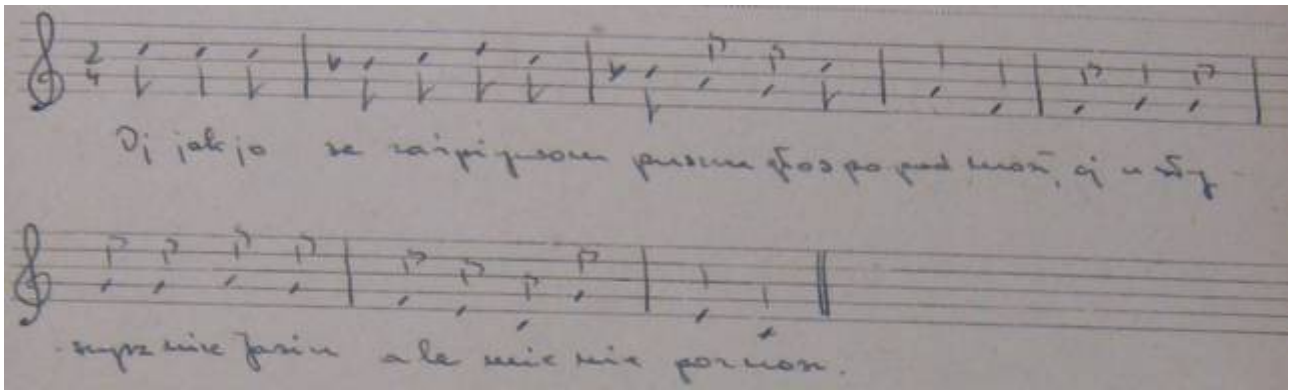 2 4
Oj jak jo se zaśpiywom puscum głos po pod, oj usły
syszmie Jasiu ale mie nie poznos.